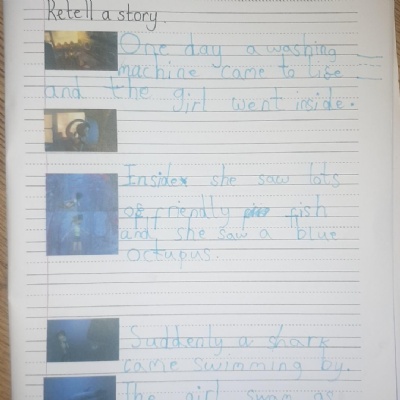 Retell a story.
One day a washing
machine came to life
and the girl went inside.
Inside she saw lots
of friendly fish
and she saw a blue
octupus.
Suddenly a shark
came swimming by.
The girl swam as